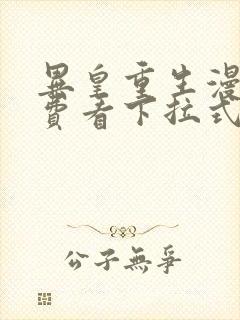 異皇重生漫
費看下拉式
公子無爭